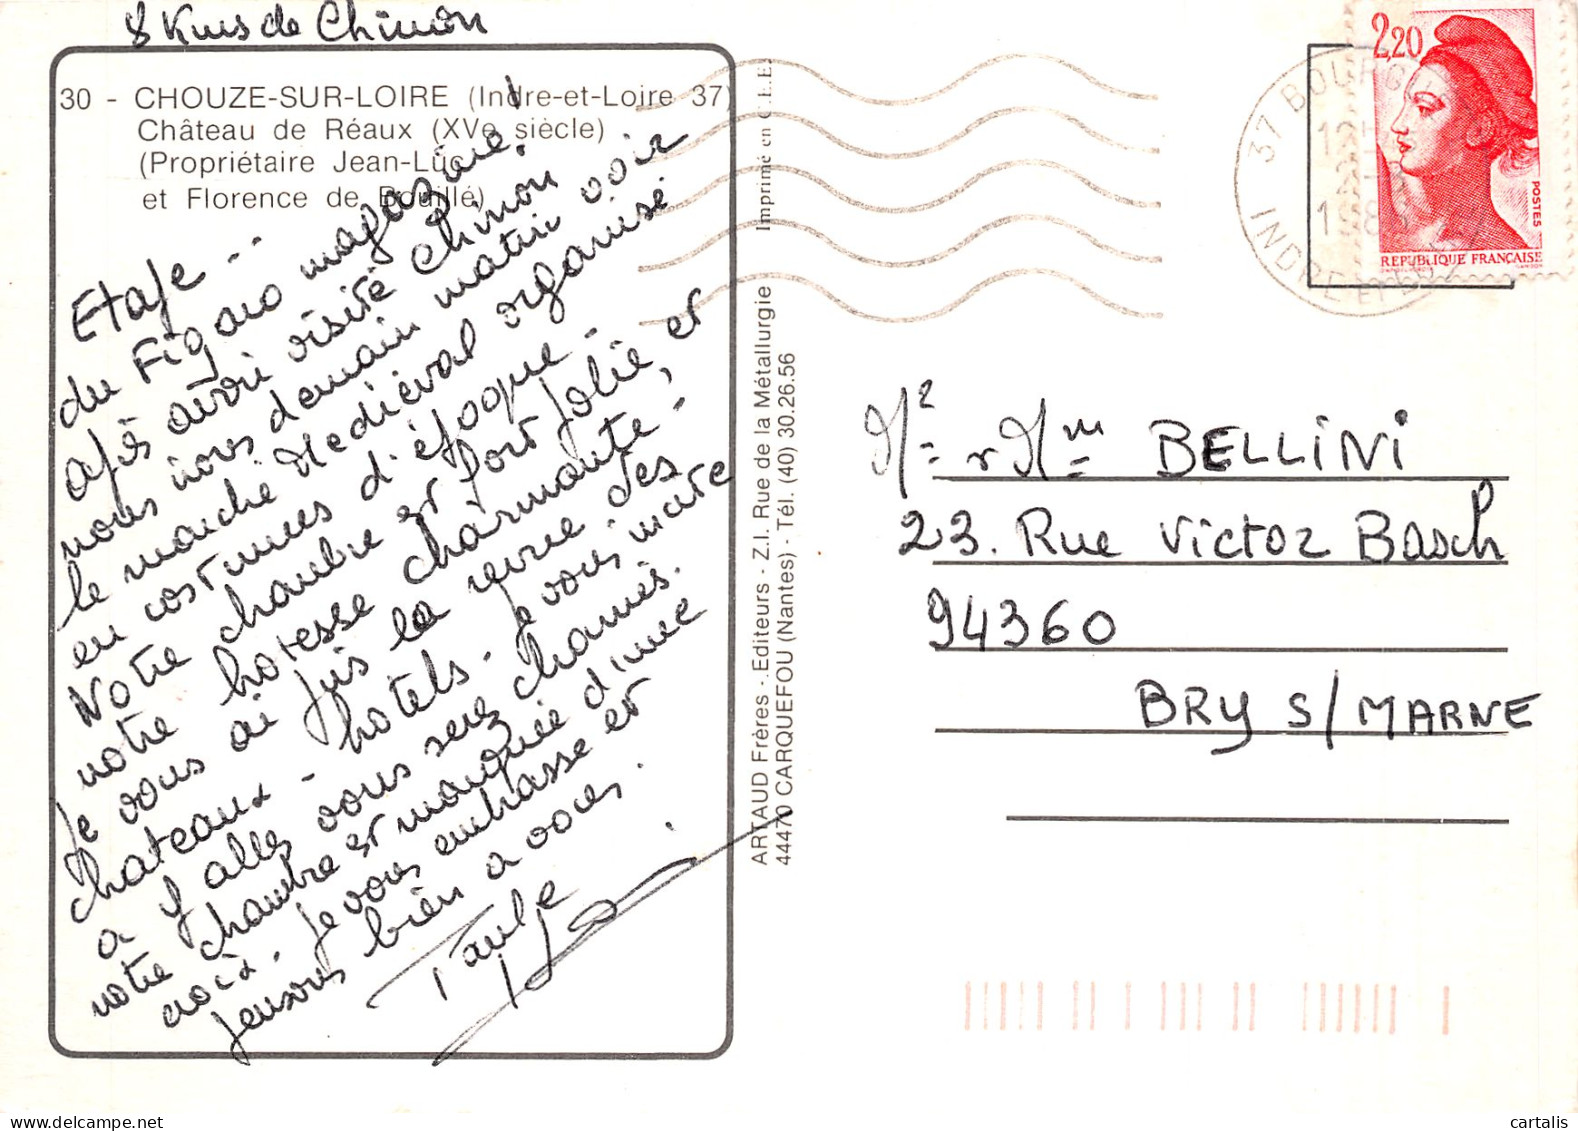 8 Kms de Chinon
30 - CHOUZE-SUR-LOIRE (Indre-et-Loire 37)
Château de Réaux (XVe siècle)
(Propriétaire Jean-Luc
et Florence de Bouillé)
Etape --
du Figaro magazine!
après avoir visité Chinon
nous irons demain matin voir
le marché Médiéval organisé
en costumes d'époque -
Notre chambre est fort jolie, et
notre hotesse charmante -
Je vous ai pris la revue des
chateaux - hotels - Je vous invite
a y aller vous serez charmés.
notre chambre est marquée d'une
croix. Je vous embrasse et
pensons bien a vous.
Paulpe
ARTAUD Frères - Editeurs - Z.I. Rue de la Métallurgie
44470 CARQUEFOU (Nantes) - Tél. (40) 30.26.56
Imprimé en C.E.E.
2,20
POSTES
REPUBLIQUE FRANÇAISE
37 BOURGU
INDRE ET
Mr et Mme BELLINI
23. Rue Victor Basch
94360
BRY S/MARNE
cartalis